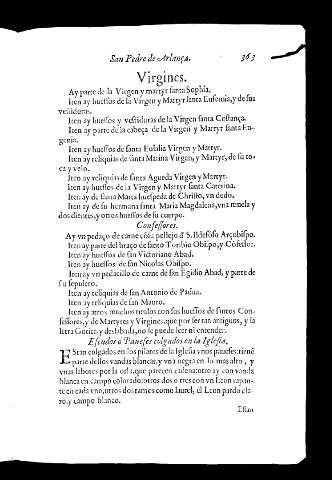 San Pedro de Arlança. 363
Virgines.
Ay parte de la Virgen y martyr santa Sophia.
Iten ay huessos de la Virgen y Martyr santa Eufemia, y de sus
vestiduras.
Iten ay huessos y vestiduras de la Virgen santa Costança.
Iten ay parte de la cabeça de la Virgen y Martyr santa Eu-
genia.
Iten ay huessos de santa Eulalia Virgen y Martyr.
Iten ay reliquias de santa Marina Virgen, y Martyr, de su to-
ca y velo.
Iten ay reliquias de santa Agueda Virgen y Martyr.
Iten ay huessos de la Virgen y Martyr santa Caterina.
Iten ay de santa Marta huespeda de Christo, vn dedo.
Iten ay de su hermana santa Maria Magdalena, vna muela y
dos dientes, y otros huessos de su cuerpo.
Confessores.
Ay vn pedaço de carne cõ su pellejo d̃ S. Ildefoso Arçobispo.
Iten ay parte del braço de santo Toribio Obispo, y Cõfessor.
Iten ay huessos de san Victoriano Abad.
Iten ay huessos de san Nicolas Obispo.
Iten ay vn pedacillo de carne de san Egidio Abad, y parte de
su sepulcro.
Iten ay reliquias de san Antonio de Padua.
Iten ay reliquias de san Mauro.
Iten ay otros muchos titulos con sus huessos de santos Con-
fessores, y de Martyres y Virgines, que por ser tan antiguos, y la
letra Gotica y deslabada, no se puede leer ni entender.
Escudos ò Paueses colgados en la Iglesia.
EStan colgados en los pilares de la Iglesia vnos paueses: tienẽ
parte dellos vandas blancas, y vna negra en lo mas alto, y
vnas labores por la orla, que parecen cadena: otro ay con vanda
blanca en campo colorado: otros dos o tres con vn Leon rapan-
te en cada vno, otros dos ramos como laurel, el Leon pardo cla-
ro, y campo blanco.
Estan